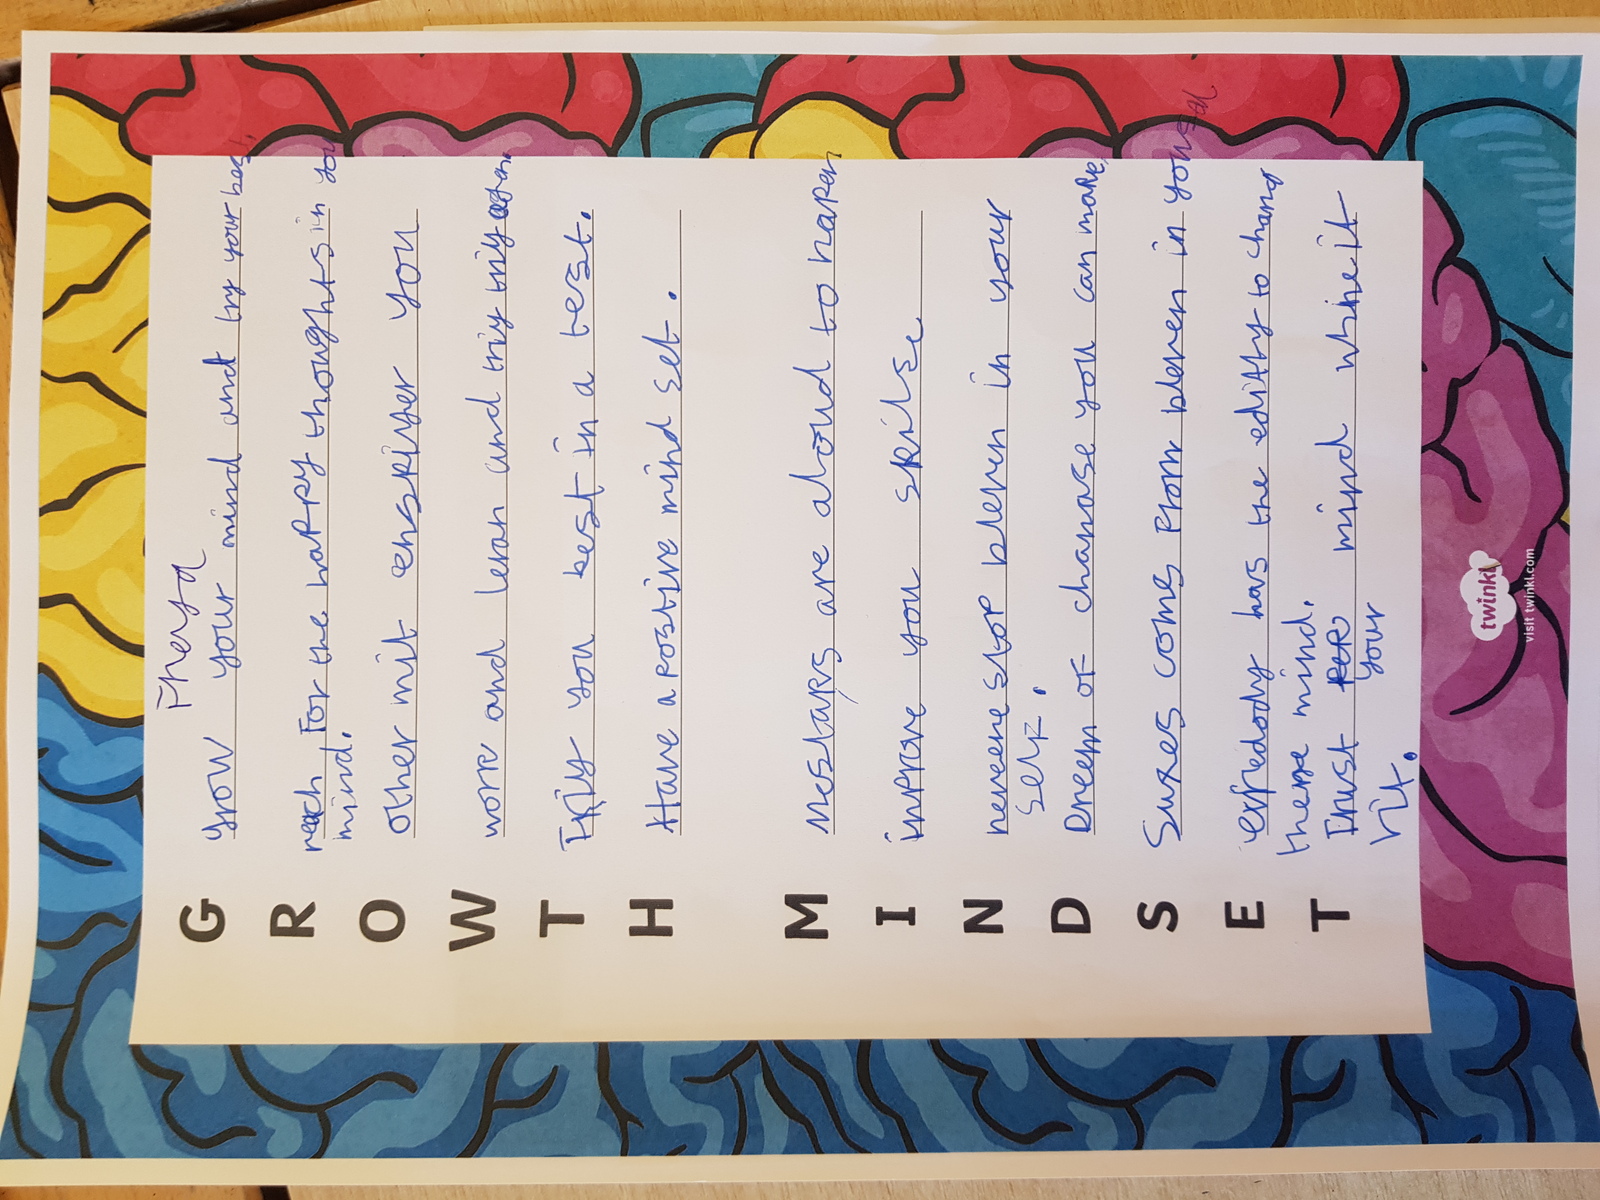 Freya
G grow your mind and try your best,
R reach For the happy thoughts in you
mind.
O other mit enspiyer you
W wore and leran and triy triy agen.
T Triy you best in a test.
H Have a postive mind set.
M Mestayps are aloud to hapen
I improve you skile
N neveene stop bleven in your
self.
D Dreem of chanase you can make,
S Suxes coms From bleven in your self
E expedody has the editty to chang
there mind.
T Trust mind whine it
your
rit.
twinkl
visit twinkl.com